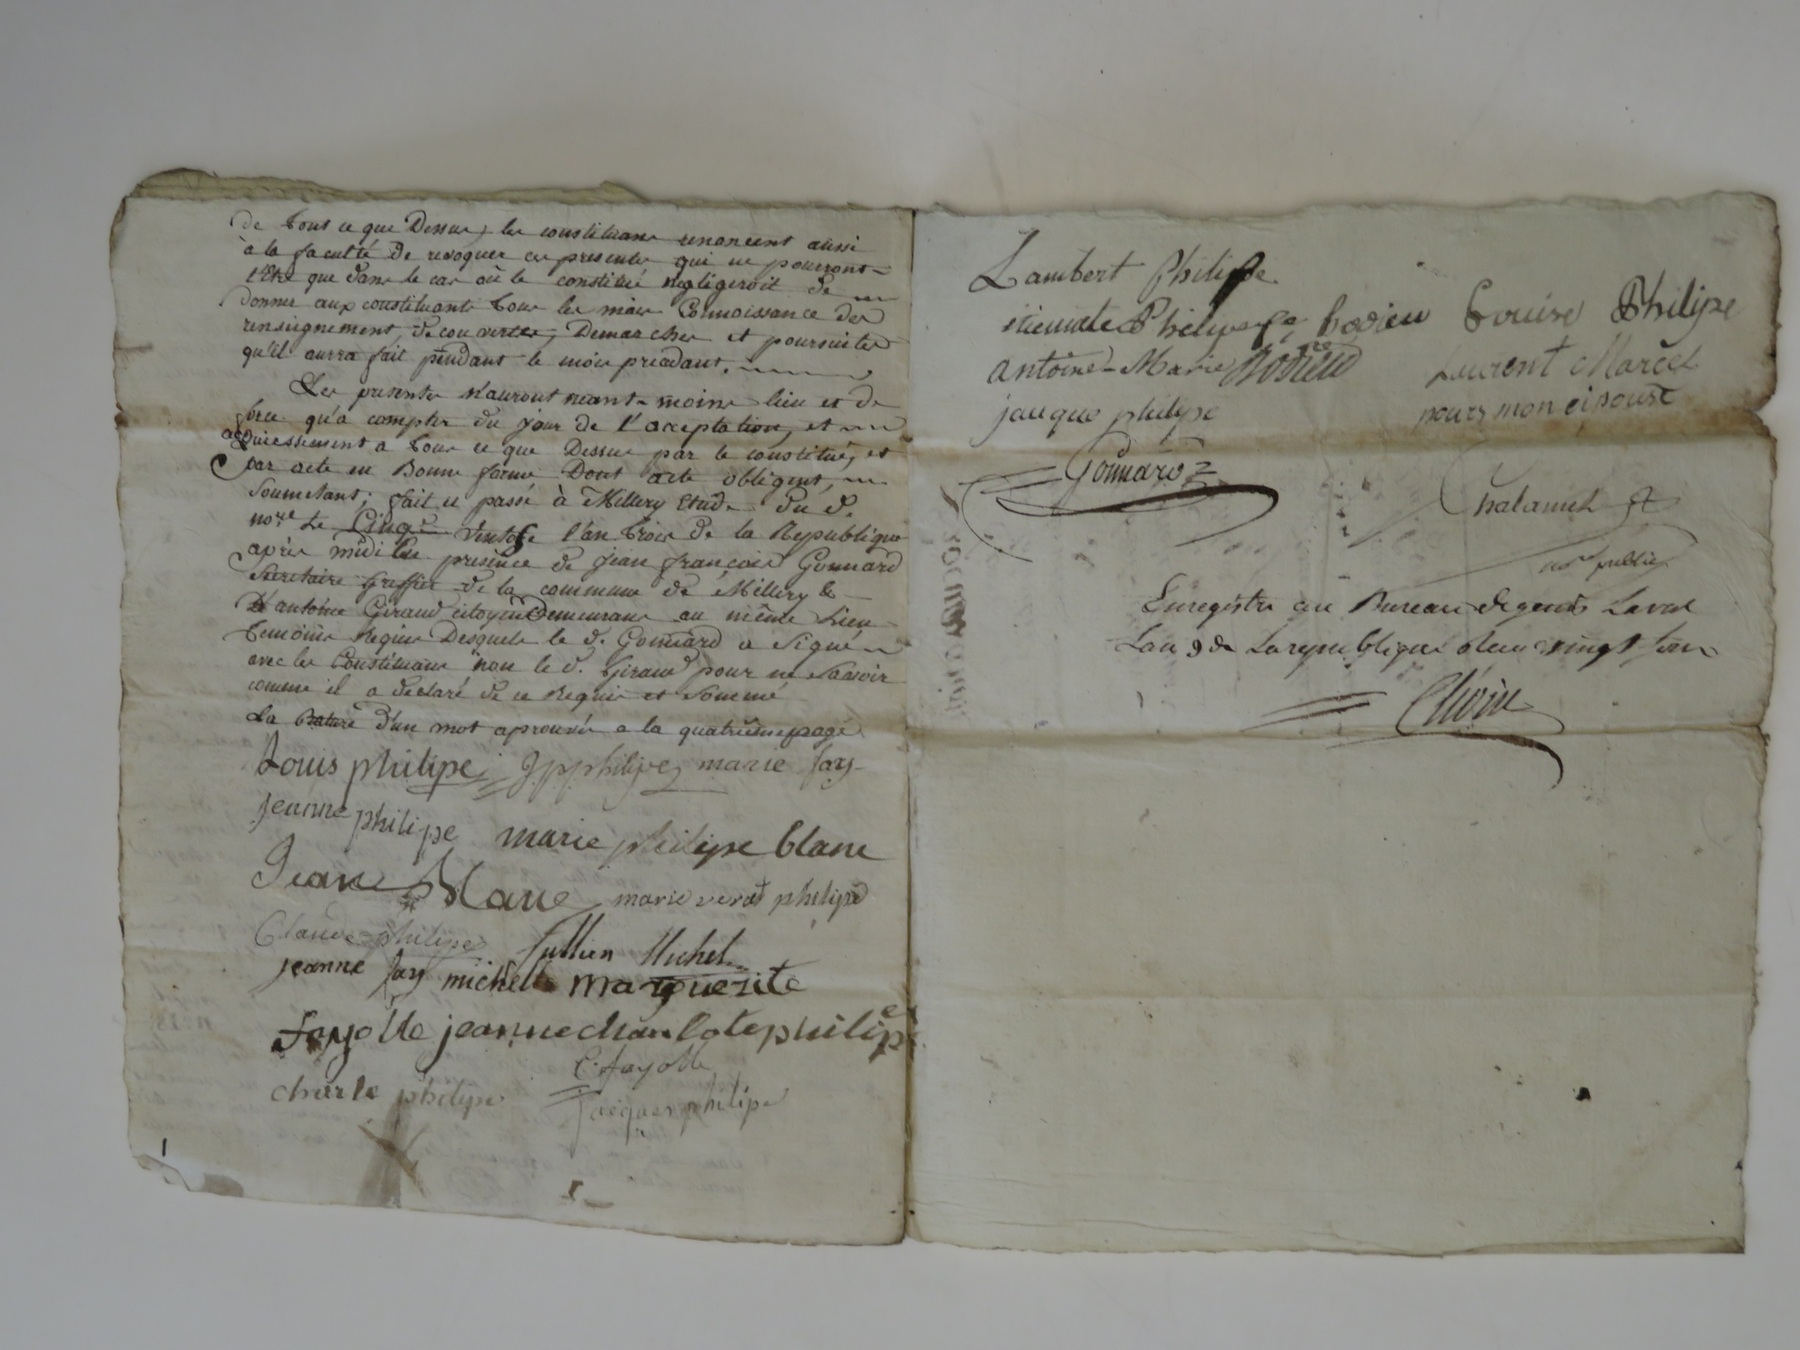 de tout ce que Dessus, les constituans renoncent aussi
à la faculté de revoquer ces presentes qui ne pourront
l'être que dans le cas où le constitué negligeroit de
donner aux constituants tous les mois Connoissance des
renseignement, decouvertes, Demarches et poursuites
qu'il aurra fait pendant le mois precedant.
Les presentes n'auront neant-moins lieu et de
force qu'a compter du jour de l'acceptation, et
acquiessement a tous ce que Dessus par le constitué, et
par acte en Bonne forme Dont acte obligent,
Soumetant; fait et passé à Millery Etude du d.
nore Le Cinq Ventose l'an trois de la Republique
après midi En presence de jean françois Gonnard
Secretaire greffier de la commune de Millery &
D'antoine Giraud citoyen Demeurans au même Lieu
temoins Requis Desquels le d. Gonnard a Signé
avec les Constituans non le d. Giraud pour ne Savoir
comme il a declaré de ce Requis et Sommé
La Rature d'un mot aprouvée a la quatrième page
Louis philipe Jpphilipe marie fay
jeanne philipe marie philipe blanc
Jean Blanc marie verat philipe
Claude philipe Jullien Michel
jeanne fay michelle marguerite
fayolle jeanne charlote philipe
C. fayolle
charle philipe Jacques philipe
Lambert Philipe
Louise Philipe
antoine Marie Laurent Marcel
jacque philipe pour mon epouse
Gonnard
Chalamel
nore public
Enregistré au Bureau de genis Laval
Lan 3 de La republique